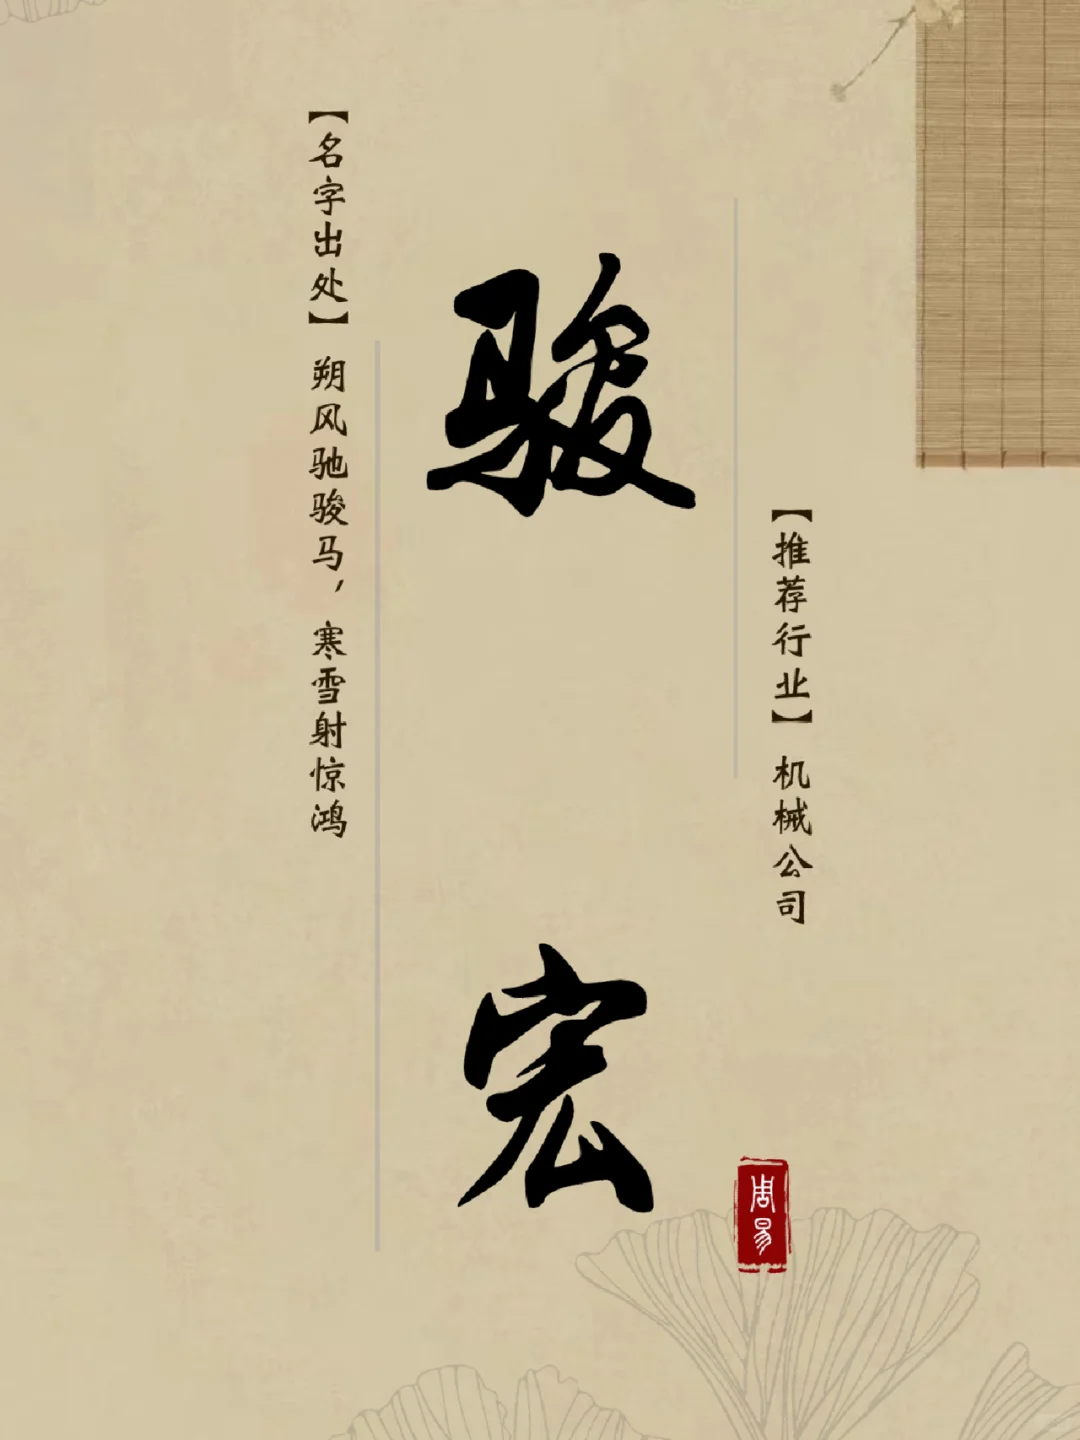 骏宏
【推荐行业】机械公司
【名字出处】朔风驰骏马，寒雪射惊鸿
周易